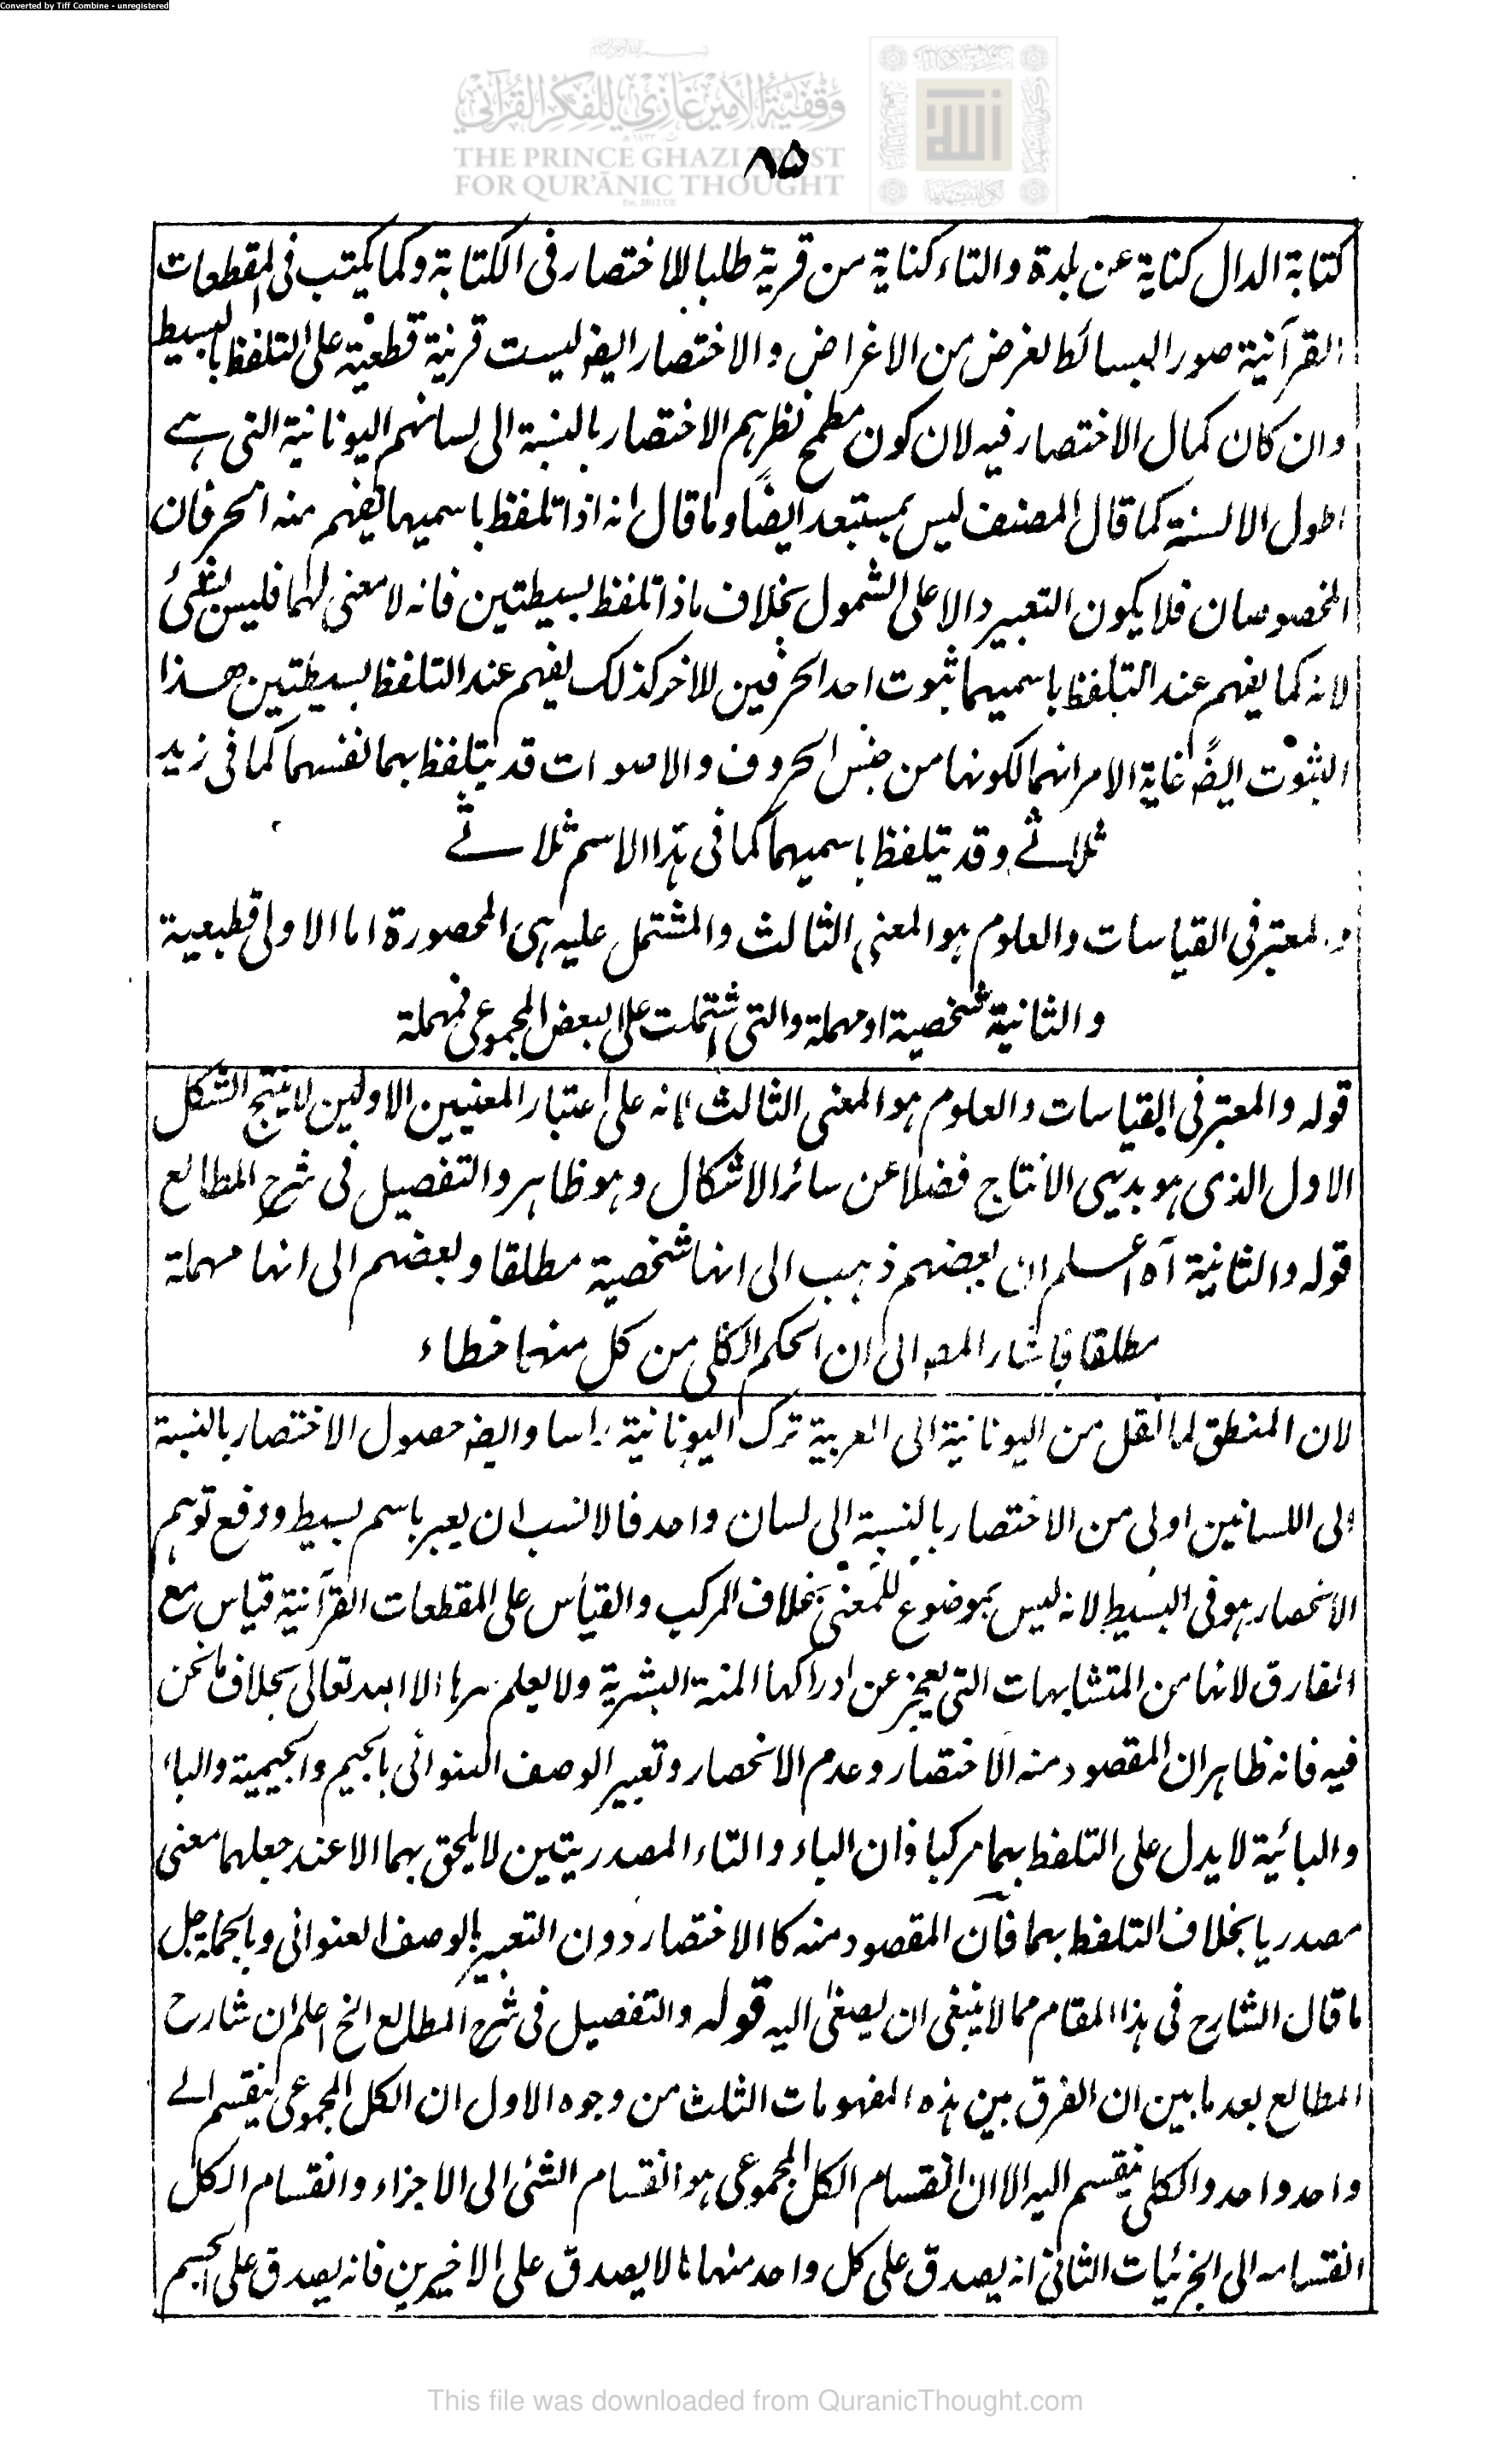 Converted by Tiff Combine - unregistered
وقفية الأمير غازي للفكر القرآني
THE PRINCE GHAZI TRUST
FOR QUR'ĀNIC THOUGHT
٨٥
كتابة الدال كناية عن بلدة والتاء كناية من قرية طلبا للاختصار فى الكتابة وكما يكتب فى المقطعات
القرآنية صور البسائط لغرض من الاغراض والاختصار ايضا ليست قرينة قطعية على التلفظ بالبسيط
وان كان كمال الاختصار فيه لان كون مطمح نظرهم الاختصار بالنسبة الى لسانهم اليونانية التى هے
اطول الالسنة كما قال المصنف ليس بمستبعد ايضًا وما قال انه اذا تلفظ باسميهما يفهم منه الحرفان
المخصوصان فلا يكون التعبير دالا على الشمول بخلاف ما اذا تلفظ بسيطتين فانه لا معنى لهما فليس بشئ
لانه كما يفهم عند التلفظ باسميهما ثبوت احد الحرفين للاخر كذلك يفهم عند التلفظ بسيطتين هذا
الثبوت ايضً غاية الامر انهما لكونهما من جنس الحروف والاصوات قد يتلفظ بهما نفسهما كما فى زيد
ثلاثے وقد يتلفظ باسميهما كما فى هذا الاسم ثلاثے
والمعتبر فى القياسات والعلوم هو المعنى الثالث والمشتمل عليه هى المحصورة اما الاولى فطبعية
والثانية شخصية او مهملة والتى اشتملت على البعض المجموعى فمهملة
قوله والمعتبر فى القياسات والعلوم هو المعنى الثالث لانه على اعتبار المعنيين الاولين لا ينتج الشكل
الاول الذى هو بديهى الانتاج فضلا عن سائر الاشكال وهو ظاهر والتفصيل فى شرح المطالع
قوله والثانية آه اعلم ان بعضهم ذهب الى انها شخصية مطلقا وبعضهم الى انها مهملة
مطلقا فاشار المصـ الى ان الحكم الكلى من كل منهما خطاء
لان المنطق لما نقل من اليونانية الى العربية ترك اليونانية راسا وايضـ حصول الاختصار بالنسبة
الى اللسانين اولى من الاختصار بالنسبة الى لسان واحد فالانسب ان يعبر باسم بسيط ودفع توهم
الانحصار هو فى البسيط لانه ليس بموضوع للمعنى بخلاف المركب والقياس على المقطعات القرآنية قياس مع
الفارق لانها من المتشابهات التى يعجز عن ادراكها المنة البشرية ولا يعلم سرها الا الله تعالى بخلاف ما نحن
فيه فانه ظاهر ان المقصود منه الاختصار وعدم الانحصار وتعبير الوصف العنوانى بالجيم والجيمية والباء
والبائية لا يدل على التلفظ بهما مركبا فان الياء والتاء المصدريتين لا يلحق بهما الا عند جعلهما معنى
مصدريا بخلاف التلفظ بهما فان المقصود منه كا الاختصار دون التعبير بالوصف العنوانى وبالجملة جل
ما قال الشارح فى هذا المقام مما لا ينبغى ان يصغى اليه قوله والتفصيل فى شرح المطالع الخ اعلم ان شارح
المطالع بعد ما بين ان الفرق بين هذه المفهومات الثلث من وجوه الاول ان الكل المجموعى ينقسم الے
واحد واحد والكلى ينقسم اليه الا ان انقسام الكل المجموعى هو انقسام الشئ الى الاجزاء وانقسام الكل
انقسامه الى الجزئيات الثانى انه يصدق على كل واحد منهما ما لا يصدق على الاخيرين فانه يصدق على الجسم
This file was downloaded from QuranicThought.com